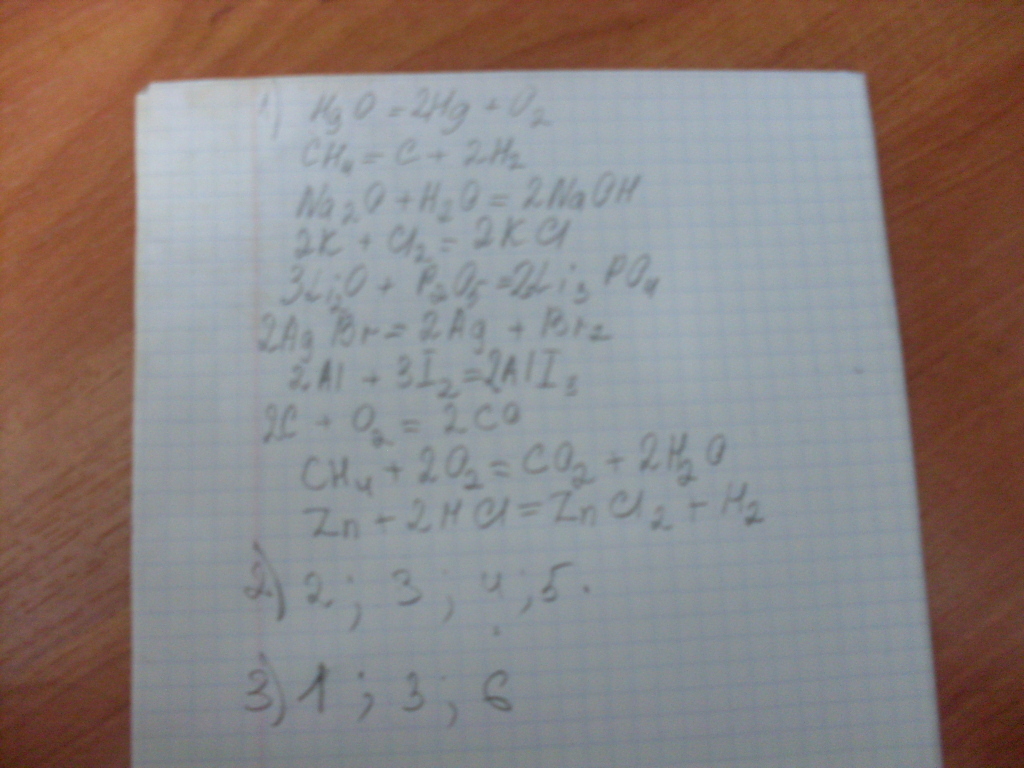 1) HgO = 2Hg + O₂
CH₄ = C + 2H₂
Na₂O + H₂O = 2NaOH
2K + Cl₂ = 2KCl
3Li₂O + P₂O₅ = 2Li₃PO₄
2AgBr = 2Ag + Br₂
2Al + 3I₂ = 2AlI₃
2C + O₂ = 2CO
CH₄ + 2O₂ = CO₂ + 2H₂O
Zn + 2HCl = ZnCl₂ + H₂
2) 2; 3; 4; 5.
3) 1; 3; 6